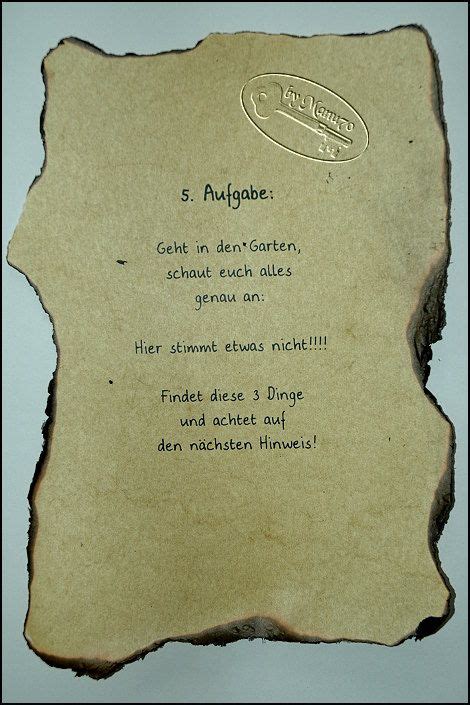 by Manu70
5. Aufgabe:
Geht in den Garten,
schaut euch alles
genau an:
Hier stimmt etwas nicht!!!!
Findet diese 3 Dinge
und achtet auf
den nächsten Hinweis!